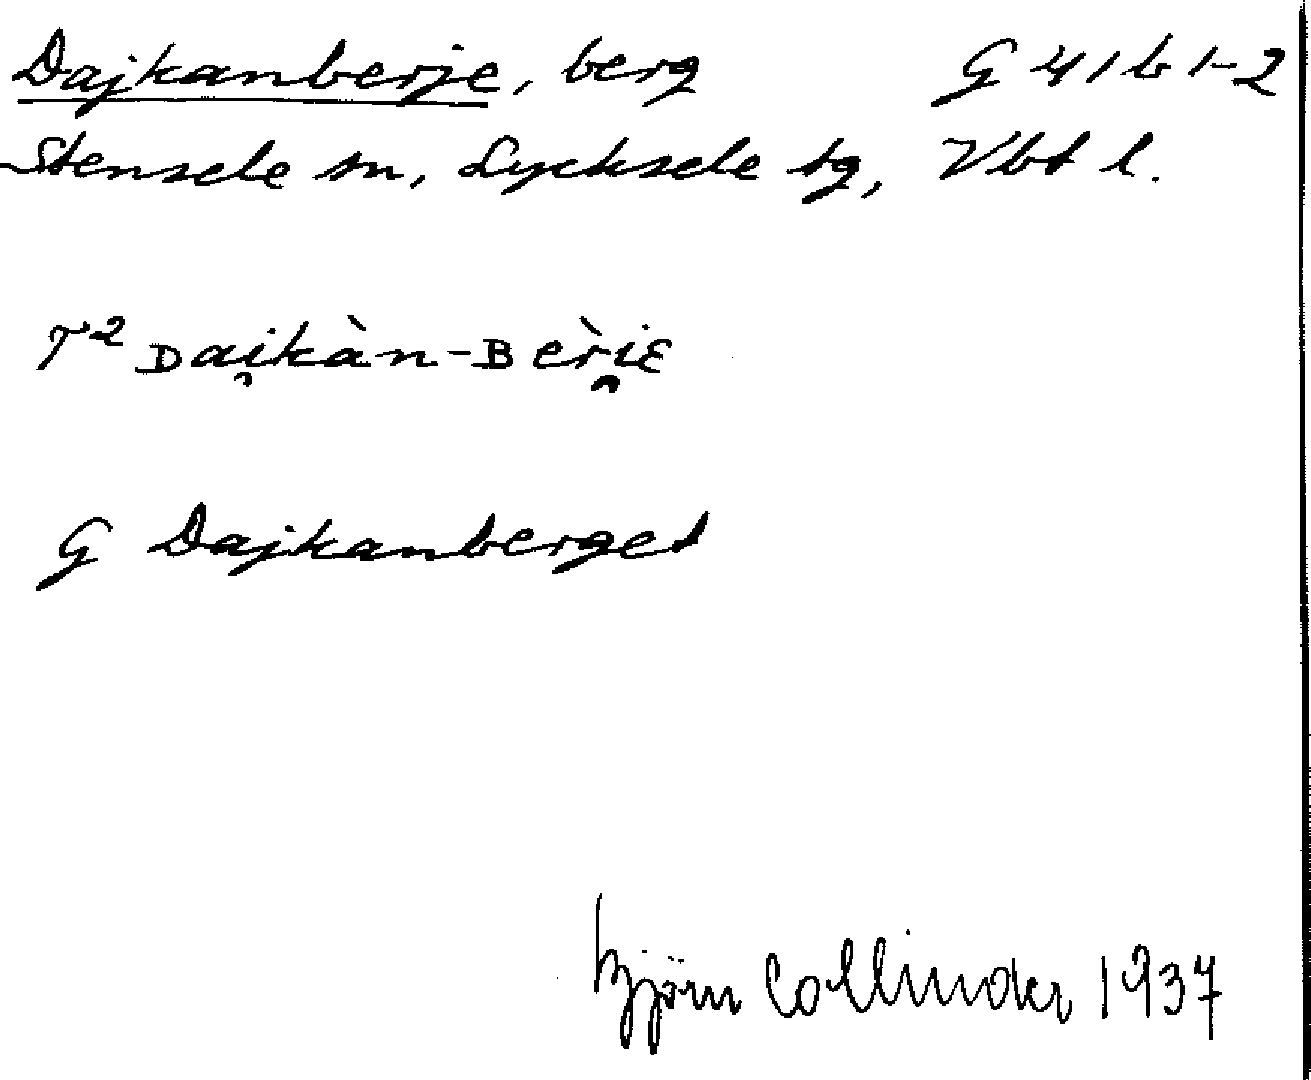 Dajkanberje, berg G 41 b 1-2
Stensele sn, Lycksele tg, Vbt l.
T² Dai̯kàn-Bèri̯ɛ
G Dajkanberget
Björn Collinder 1937